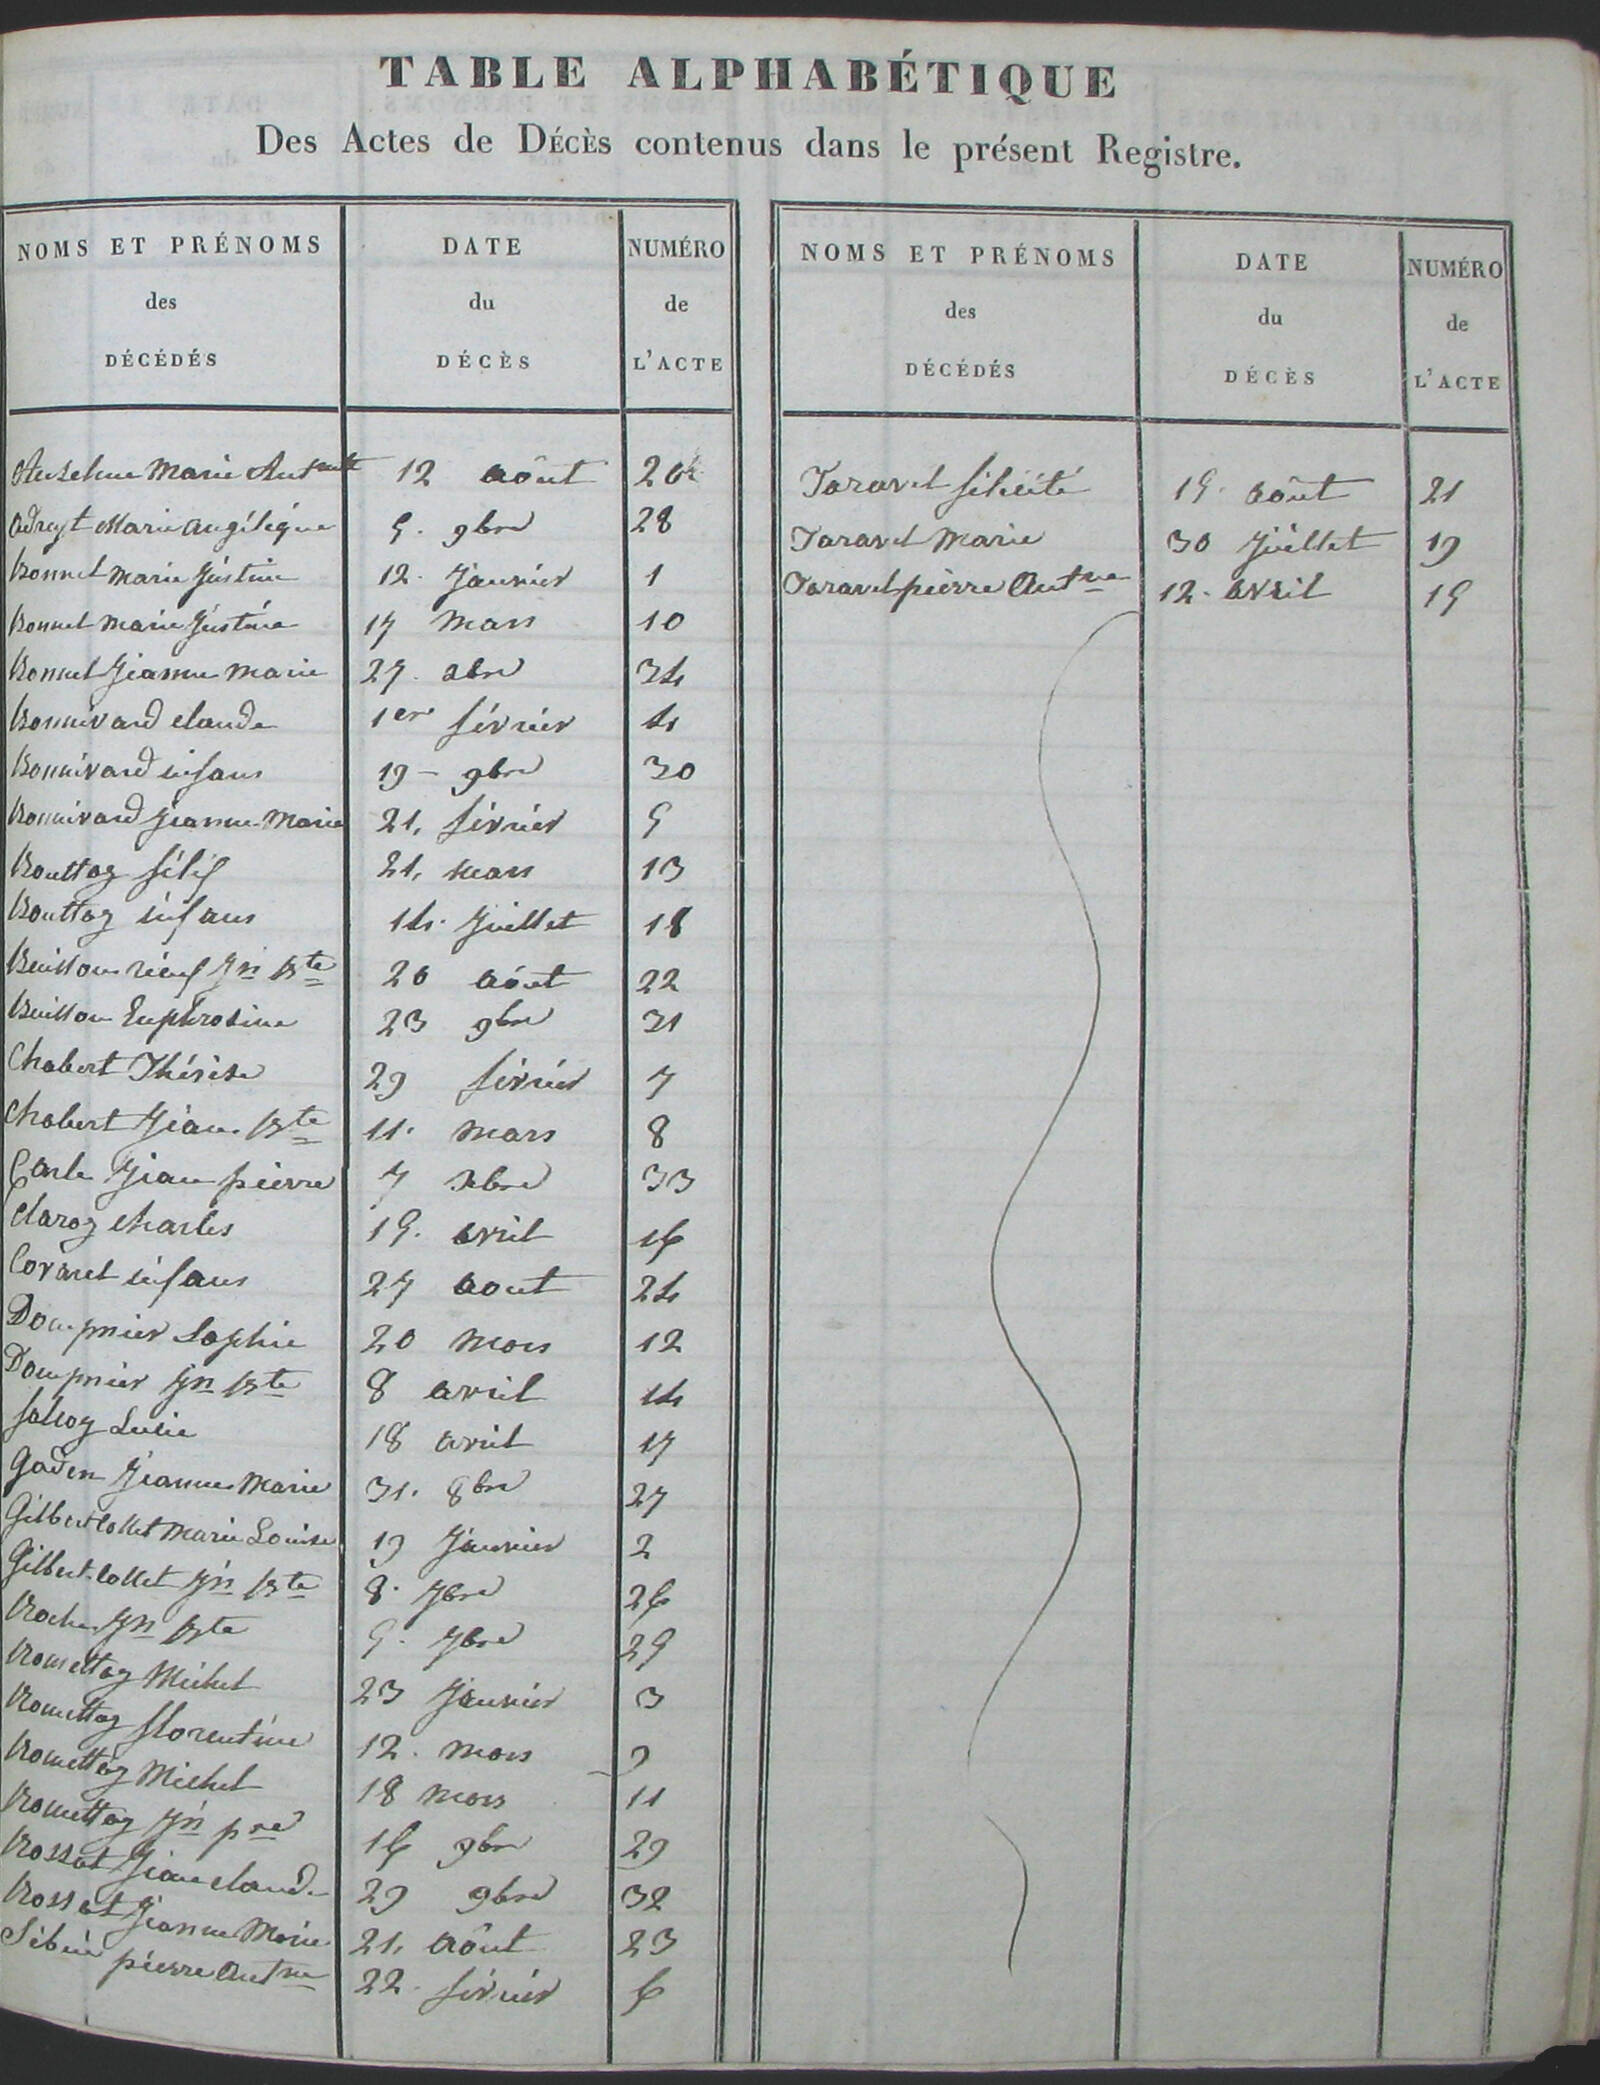 TABLE ALPHABÉTIQUE
Des Actes de DÉCÈS contenus dans le présent Registre.
NOMS ET PRÉNOMS des DÉCÉDÉS
DATE du DÉCÈS
NUMÉRO de L'ACTE
Anselme Marie Antnette 12 août 20
Adreyt Marie angélique 5. 9bre 28
Bonnel marie Justine 12. Janvier 1
Bonnel marie Justine 17 mars 10
Bonnel Jeanne marie 27. xbre 34
Bonnivard claude 1er février 4
Bonnivard enfans 19 - 9bre 30
Bonnivard Jeanne marie 21, février 5
Bouttaz félix 21, mars 13
Bouttaz enfans 14. Juillet 18
Buisson Jn Bte 20 août 22
Buisson Euphrosine 23 9bre 31
Chabert Thérèse 29 février 7
Chabert Jean Bte 11. mars 8
Carle Jean pierre 7 xbre 33
Claroz charles 15. avril 16
Coravel enfans 27 aout 24
Dompnier Sophie 20 mars 12
Dompnier Jn Bte 8 avril 14
falcoz Lucie 18 avril 17
Gaden Jeanne Marie 31. 8bre 27
Gilbert Collet Marie Louise 19 Janvier 2
Gilbert-Collet Jn Bte 8. 7bre 26
Roche Jn Bte 5. 7bre 25
Romettaz Michel 23 Janvier 3
Romettaz florentine 12. mars 9
Romettaz Michel 18 mars 11
Romettaz Jn pre 16 9bre 29
Rossat Jean claude 29 9bre 32
Rossat Jeanne Marie 21, août 23
Sibué pierre Antne 22. février 6
NOMS ET PRÉNOMS des DÉCÉDÉS
DATE du DÉCÈS
NUMÉRO de L'ACTE
Taravel félicité 15. août 21
Taravel Marie 30 Juillet 19
Taravel pierre Antne 12. avril 15